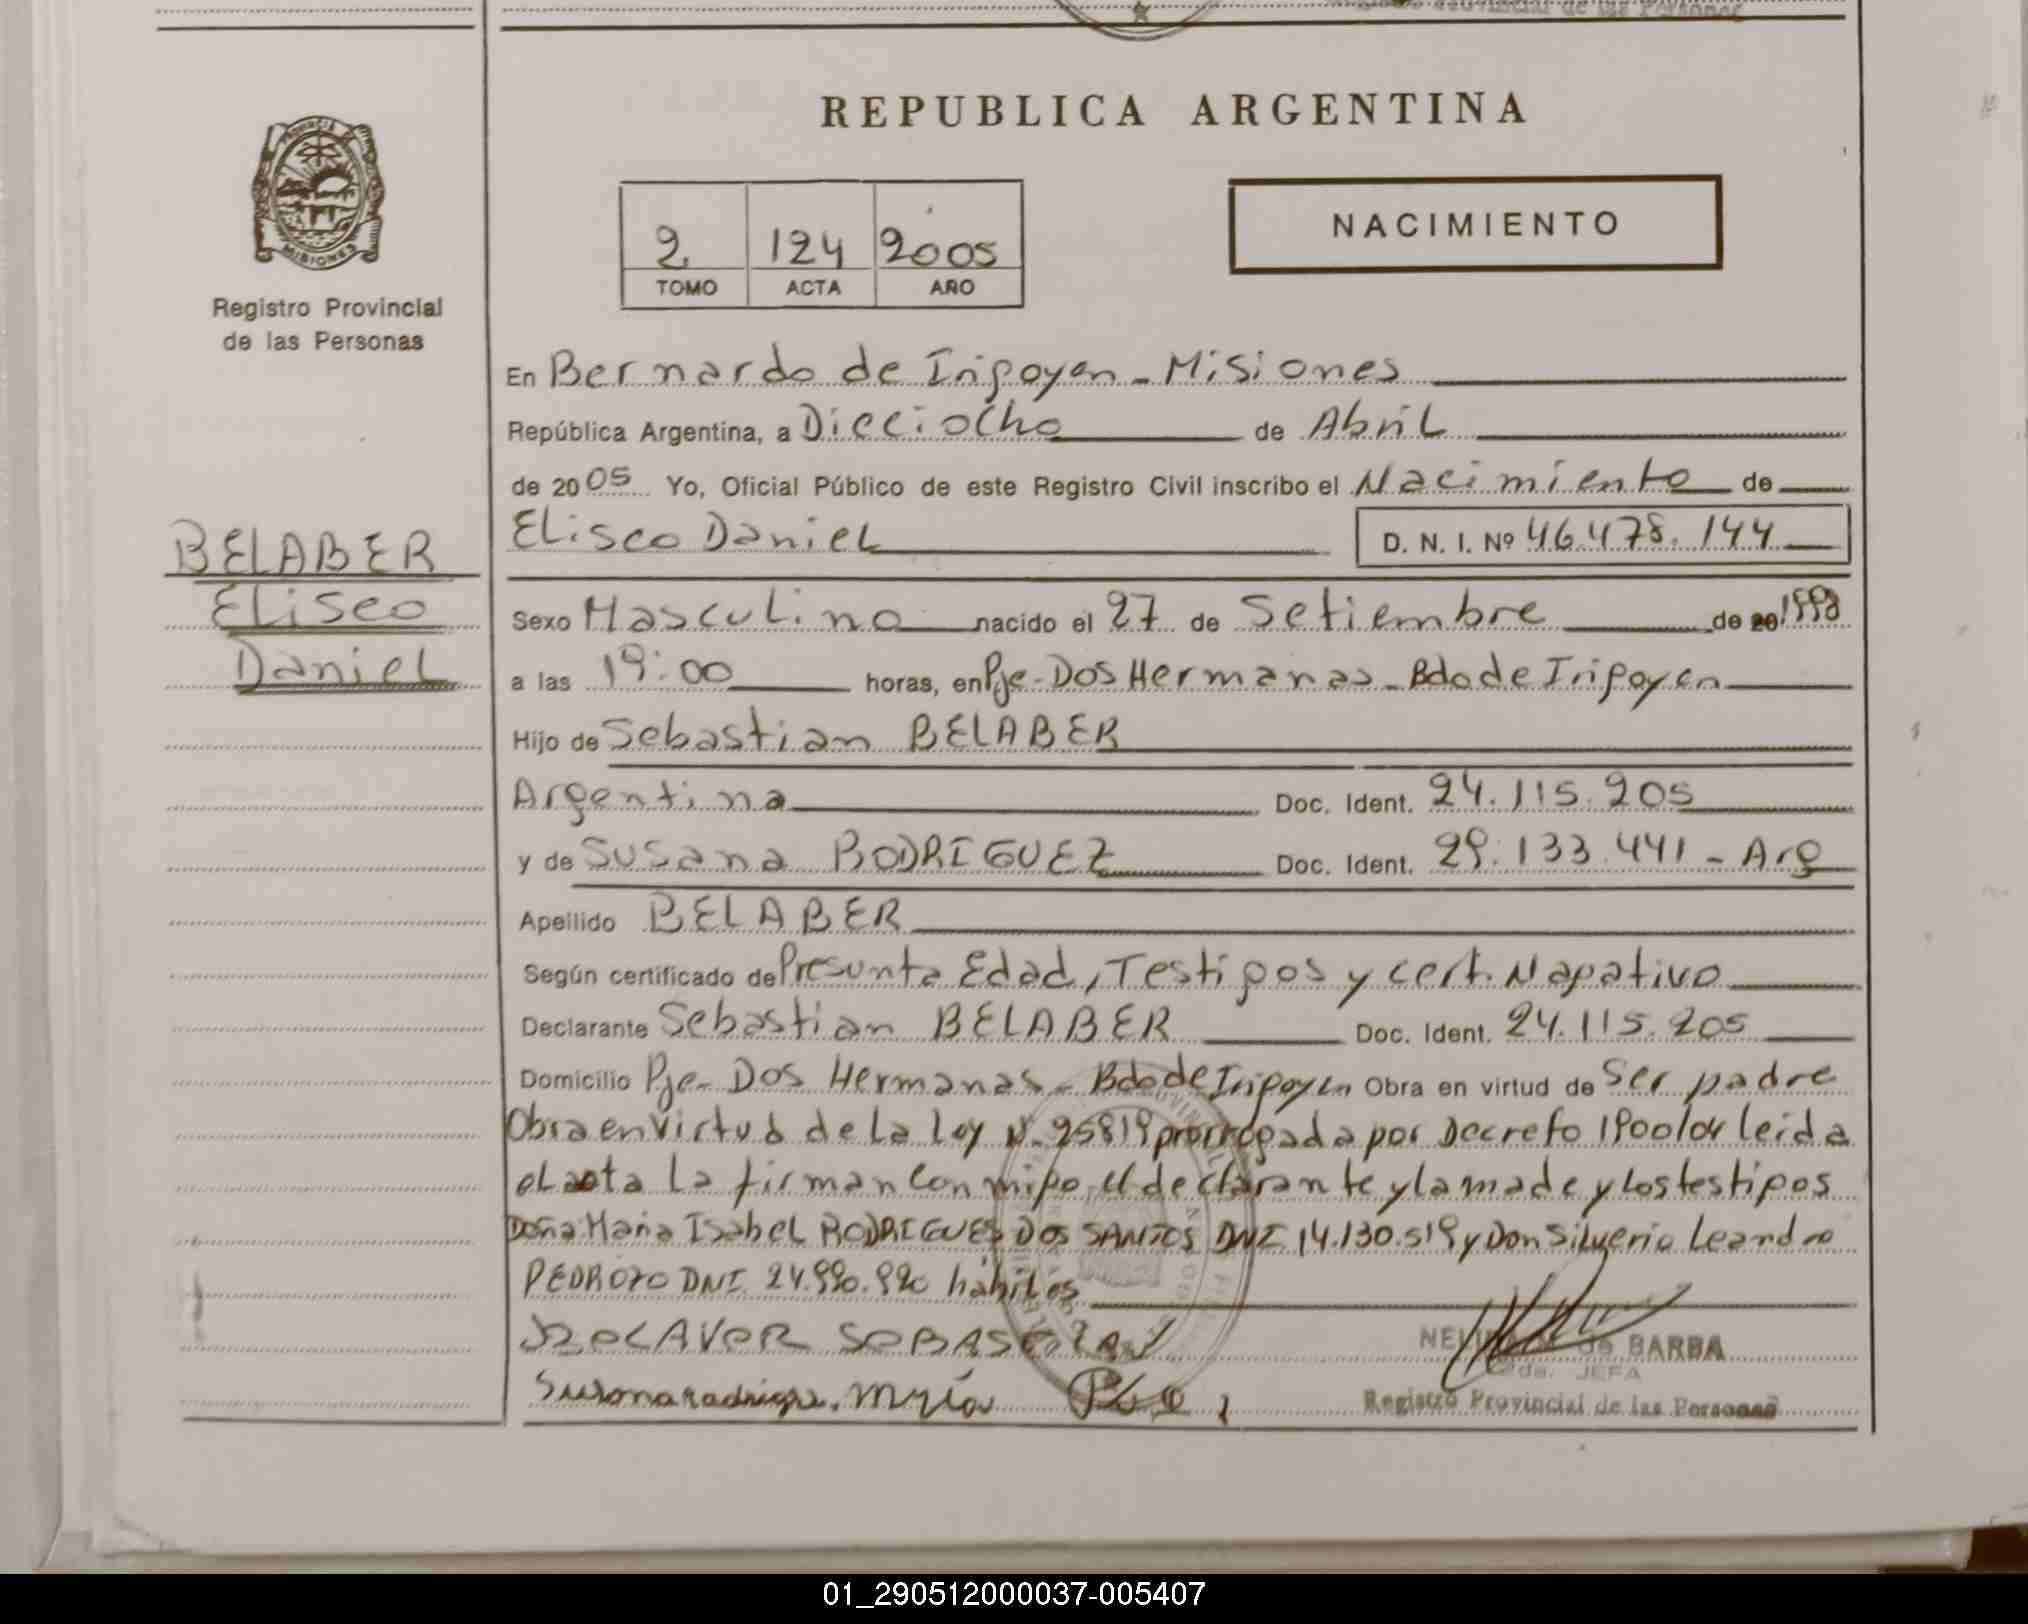 REPUBLICA ARGENTINA
PROVINCIA DE
MISIONES
Registro Provincial
de las Personas
2 124 2005
TOMO ACTA AÑO
NACIMIENTO
BELABER
Eliseo
Daniel
En Bernardo de Iripoyen - Misiones
República Argentina, a Dieciocho de Abril
de 2005 Yo, Oficial Público de este Registro Civil inscribo el Nacimiento de
Eliseo Daniel D. N. I. Nº 46.478.144
Sexo Masculino nacido el 27 de Setiembre de 20 1998
a las 19:00 horas, en Pje-Dos Hermanas - Bdo de Iripoyen
Hijo de Sebastian BELABER
Argentina Doc. Ident. 24.115.205
y de Susana RODRIGUEZ Doc. Ident. 29.133.441 - Arg
Apellido BELABER
Según certificado de Presunta Edad, Testipos y cert. Napativo
Declarante Sebastian BELABER Doc. Ident. 24.115.205
Domicilio Pje- Dos Hermanas - Bdo de Iripoyen Obra en virtud de Ser padre
Obra en Virtud de La Ley N. 25819 prorrogada por Decreto 1900/04 leida
el acta La firman Con mipo, el declarante y la made y Los testipos
Doña Maria Isabel RODRIGUES DOS SANTOS DNI 14.130.519 y Don Silverio Leandro
PEDROZO DNI. 24.990.990 hábiles
BELAVER SEBASTIAN
Susana radrigz. Myría
de BARBA
JEFA
Registro Provincial de las Personas
01_290512000037-005407